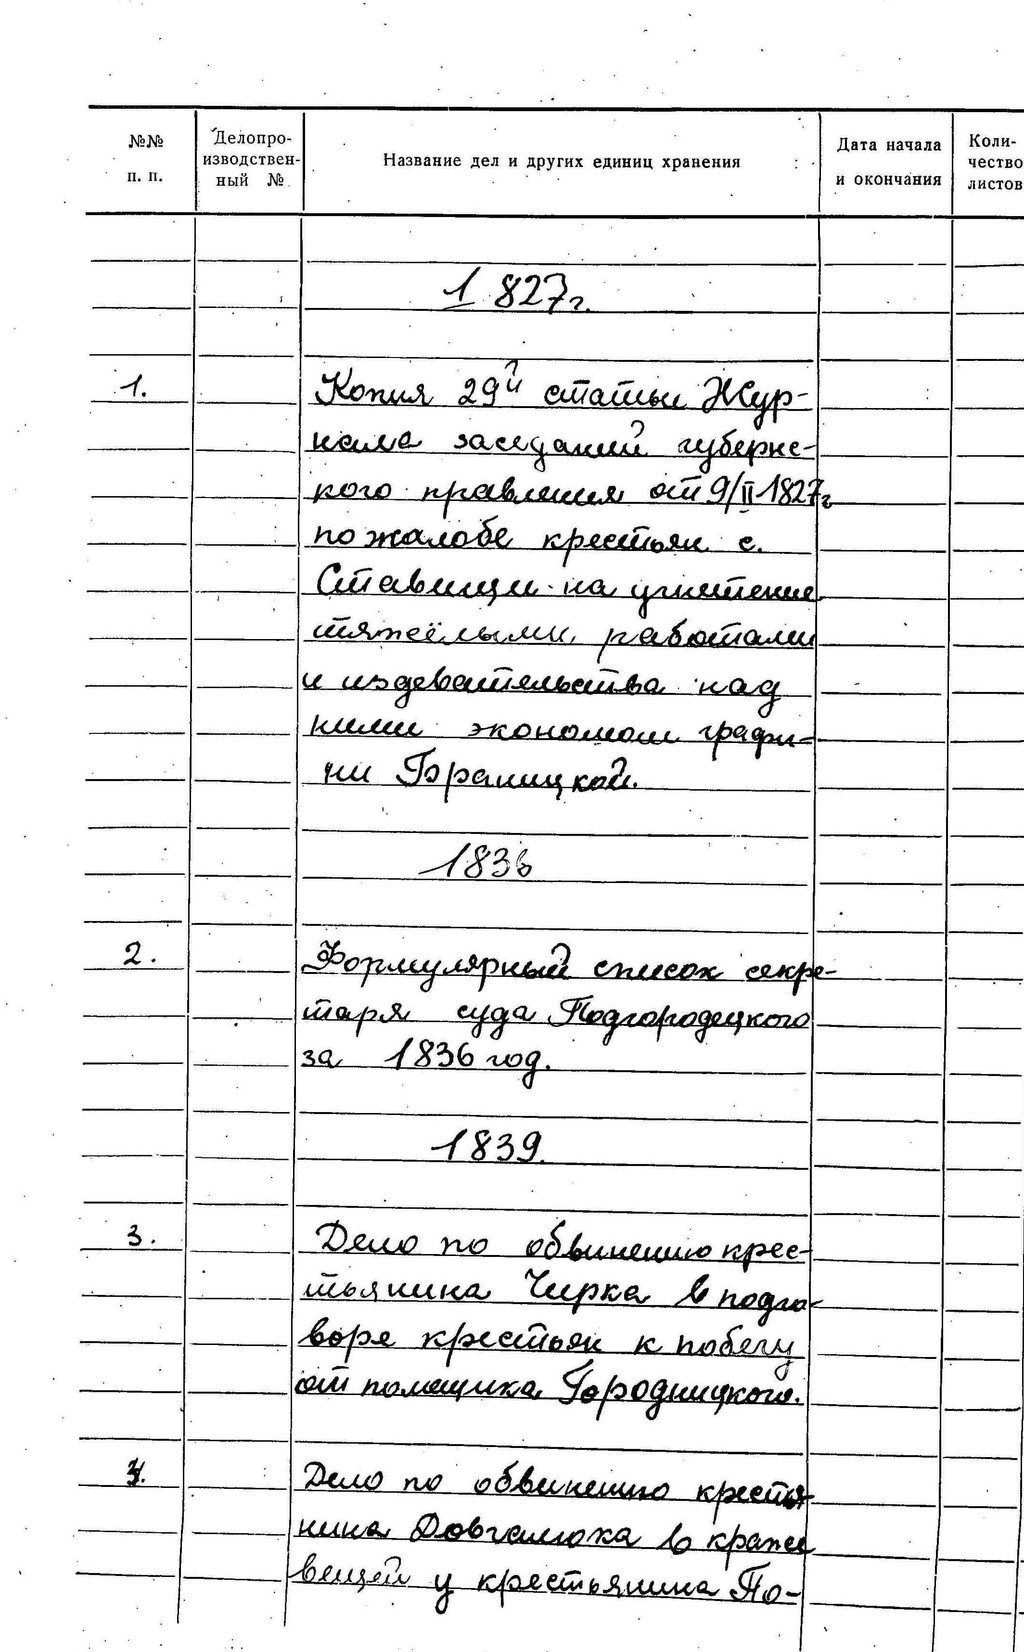 №№ п. п.
Делопро-
изводствен-
ный №
Название дел и других единиц хранения
Дата начала
и окончания
Коли-
чество
листов
1827г.
1. Копия 29й статьи Жур-
нала заседаний губернс-
кого правления от 9/II 1827г
по жалобе крестьян с.
Ставищи на угнетение
тяжёлыми работами
и издевательства над
ними экономом графи-
ни Браницкой.
1836
2. Формулярный список секре-
таря суда Подгородецкого
за 1836 год.
1839.
3. Дело по обвинению крес-
тьянина Чирка в подго-
воре крестьян к побегу
от помещика Городницкого.
4. Дело по обвинению крестья-
нина Довгалюка в краже
вещей у крестьянина По-